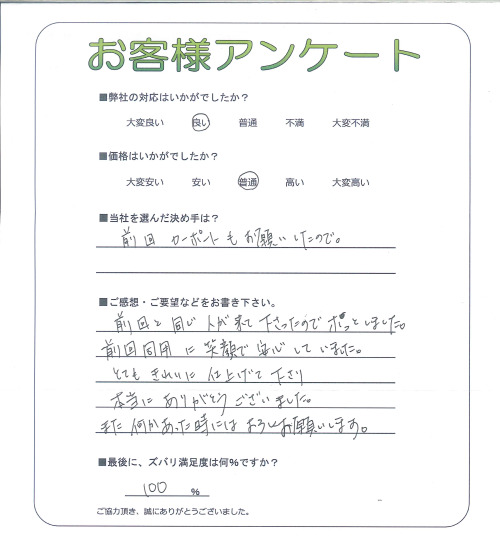 お客様アンケート
■弊社の対応はいかがでしたか?
大変良い 良い 普通 不満 大変不満
■価格はいかがでしたか?
大変安い 安い 普通 高い 大変高い
■当社を選んだ決め手は?
前回 カーポートも お願いしたので。
■ご感想・ご要望などをお書き下さい。
前回と同じ人が来て下さったので ホッとしました。
前回同用に笑顔で安心していました。
とても きれいに 仕上げて下さり
本当に ありがとうございました。
また何かあった時には よろしくお願いします。
■最後に、ズバリ満足度は何%ですか?
100 %
ご協力頂き、誠にありがとうございました。